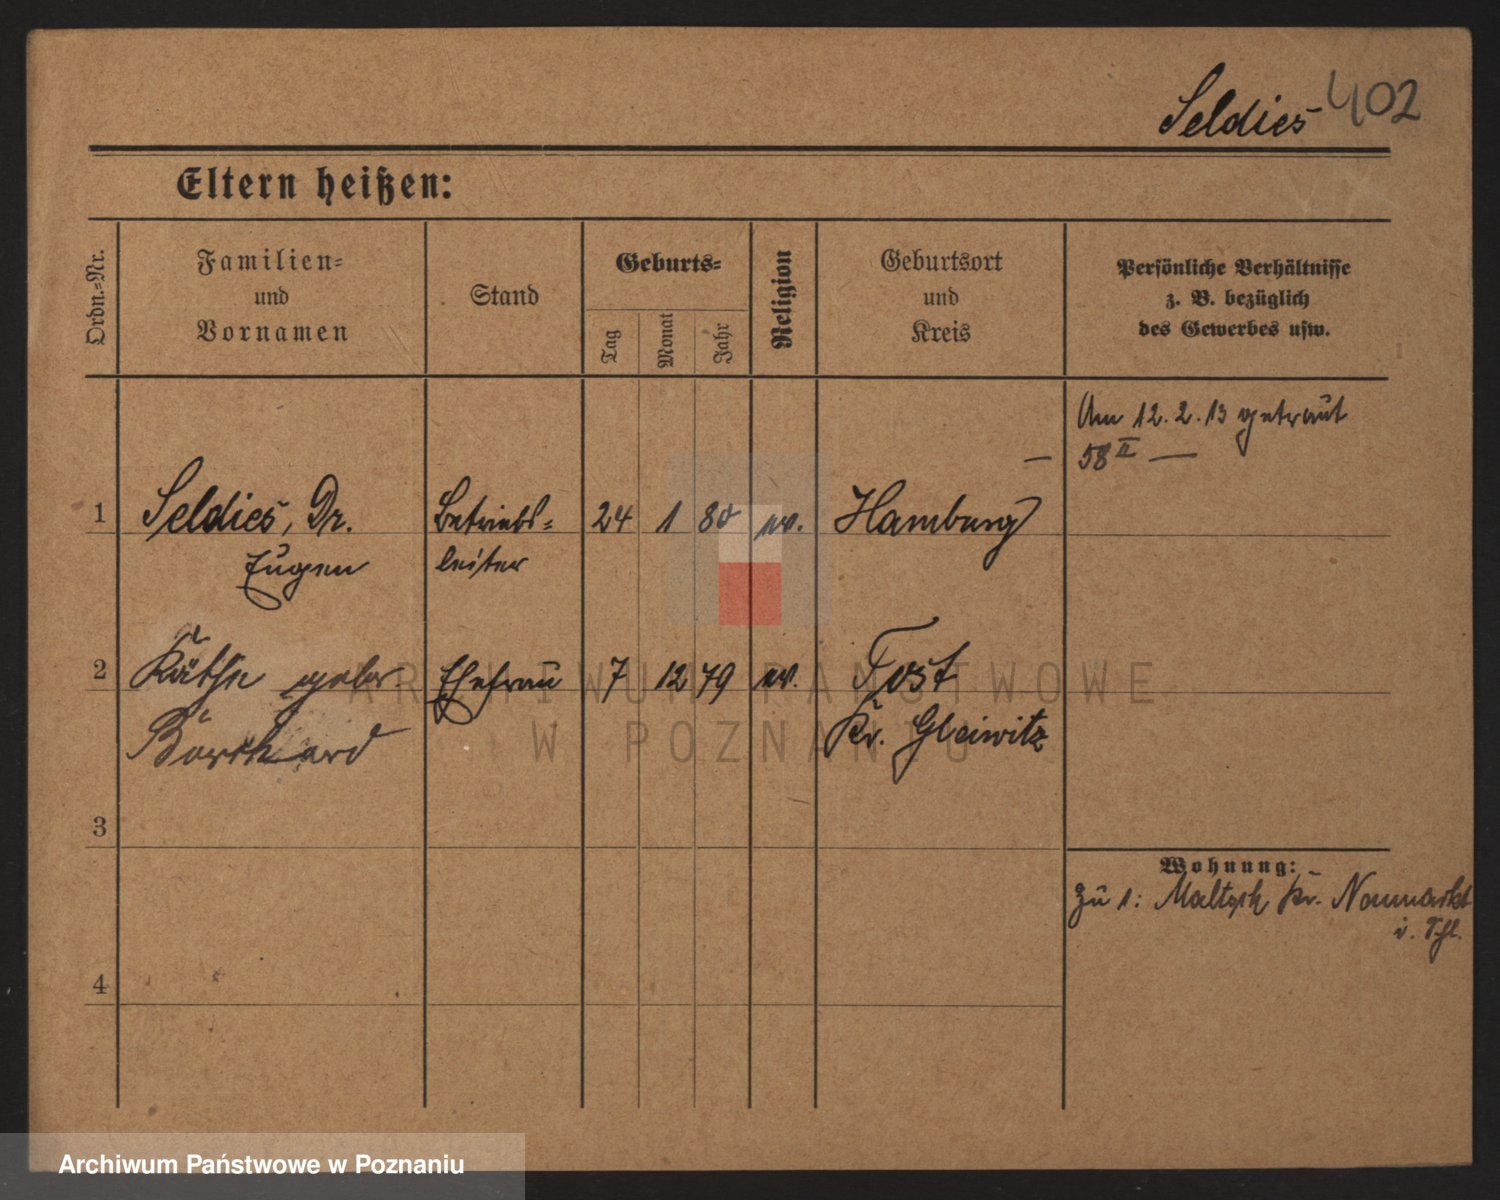 Seldies 402
Eltern heißen:
Ordn.-Nr.
Familien-
und
Vornamen
Stand
Geburts-
Tag
Monat
Jahr
Religion
Geburtsort
und
Kreis
Persönliche Verhältnisse
z. B. bezüglich
des Gewerbes usw.
Am 12. 2. 13 getraut
— 58 II —
1 Seldies, Dr. Betriebs- 24 1 80 ev. Hamburg
Eugen leiter
2 Käthe gebor. Ehefrau 7 12 79 ev. Tost
Borchard Kr. Gleiwitz
3
Wohnung:
zu 1: Maltsch Kr. Neumarkt
i. Schl.
4
ARCHIWUM PAŃSTWOWE
W POZNANIU
Archiwum Państwowe w Poznaniu